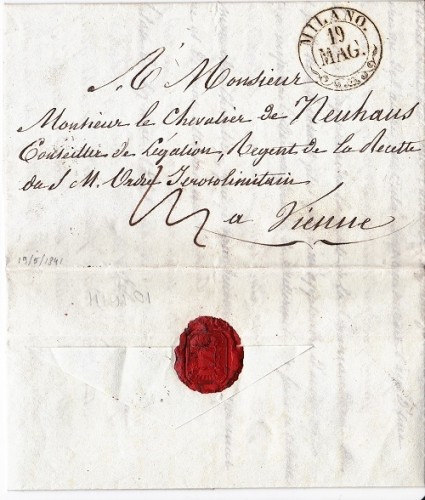 MILANO.
19
MAG.
A Monsieur
Monsieur le Chevalier de Neuhaus
Conseiller de Légation, Regent de la Recette
du S M. Ordre Jerosolimitain
a Vienne
19/5/1841